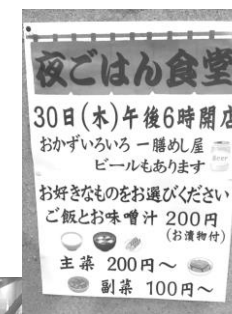 夜ごはん食堂
30日(木)午後6時開店
おかずいろいろ 一膳めし屋
ビールもあります
Beer
お好きなものをお選びください
ご飯とお味噌汁 200円
(お漬物付)
主菜 200円～
副菜 100円～